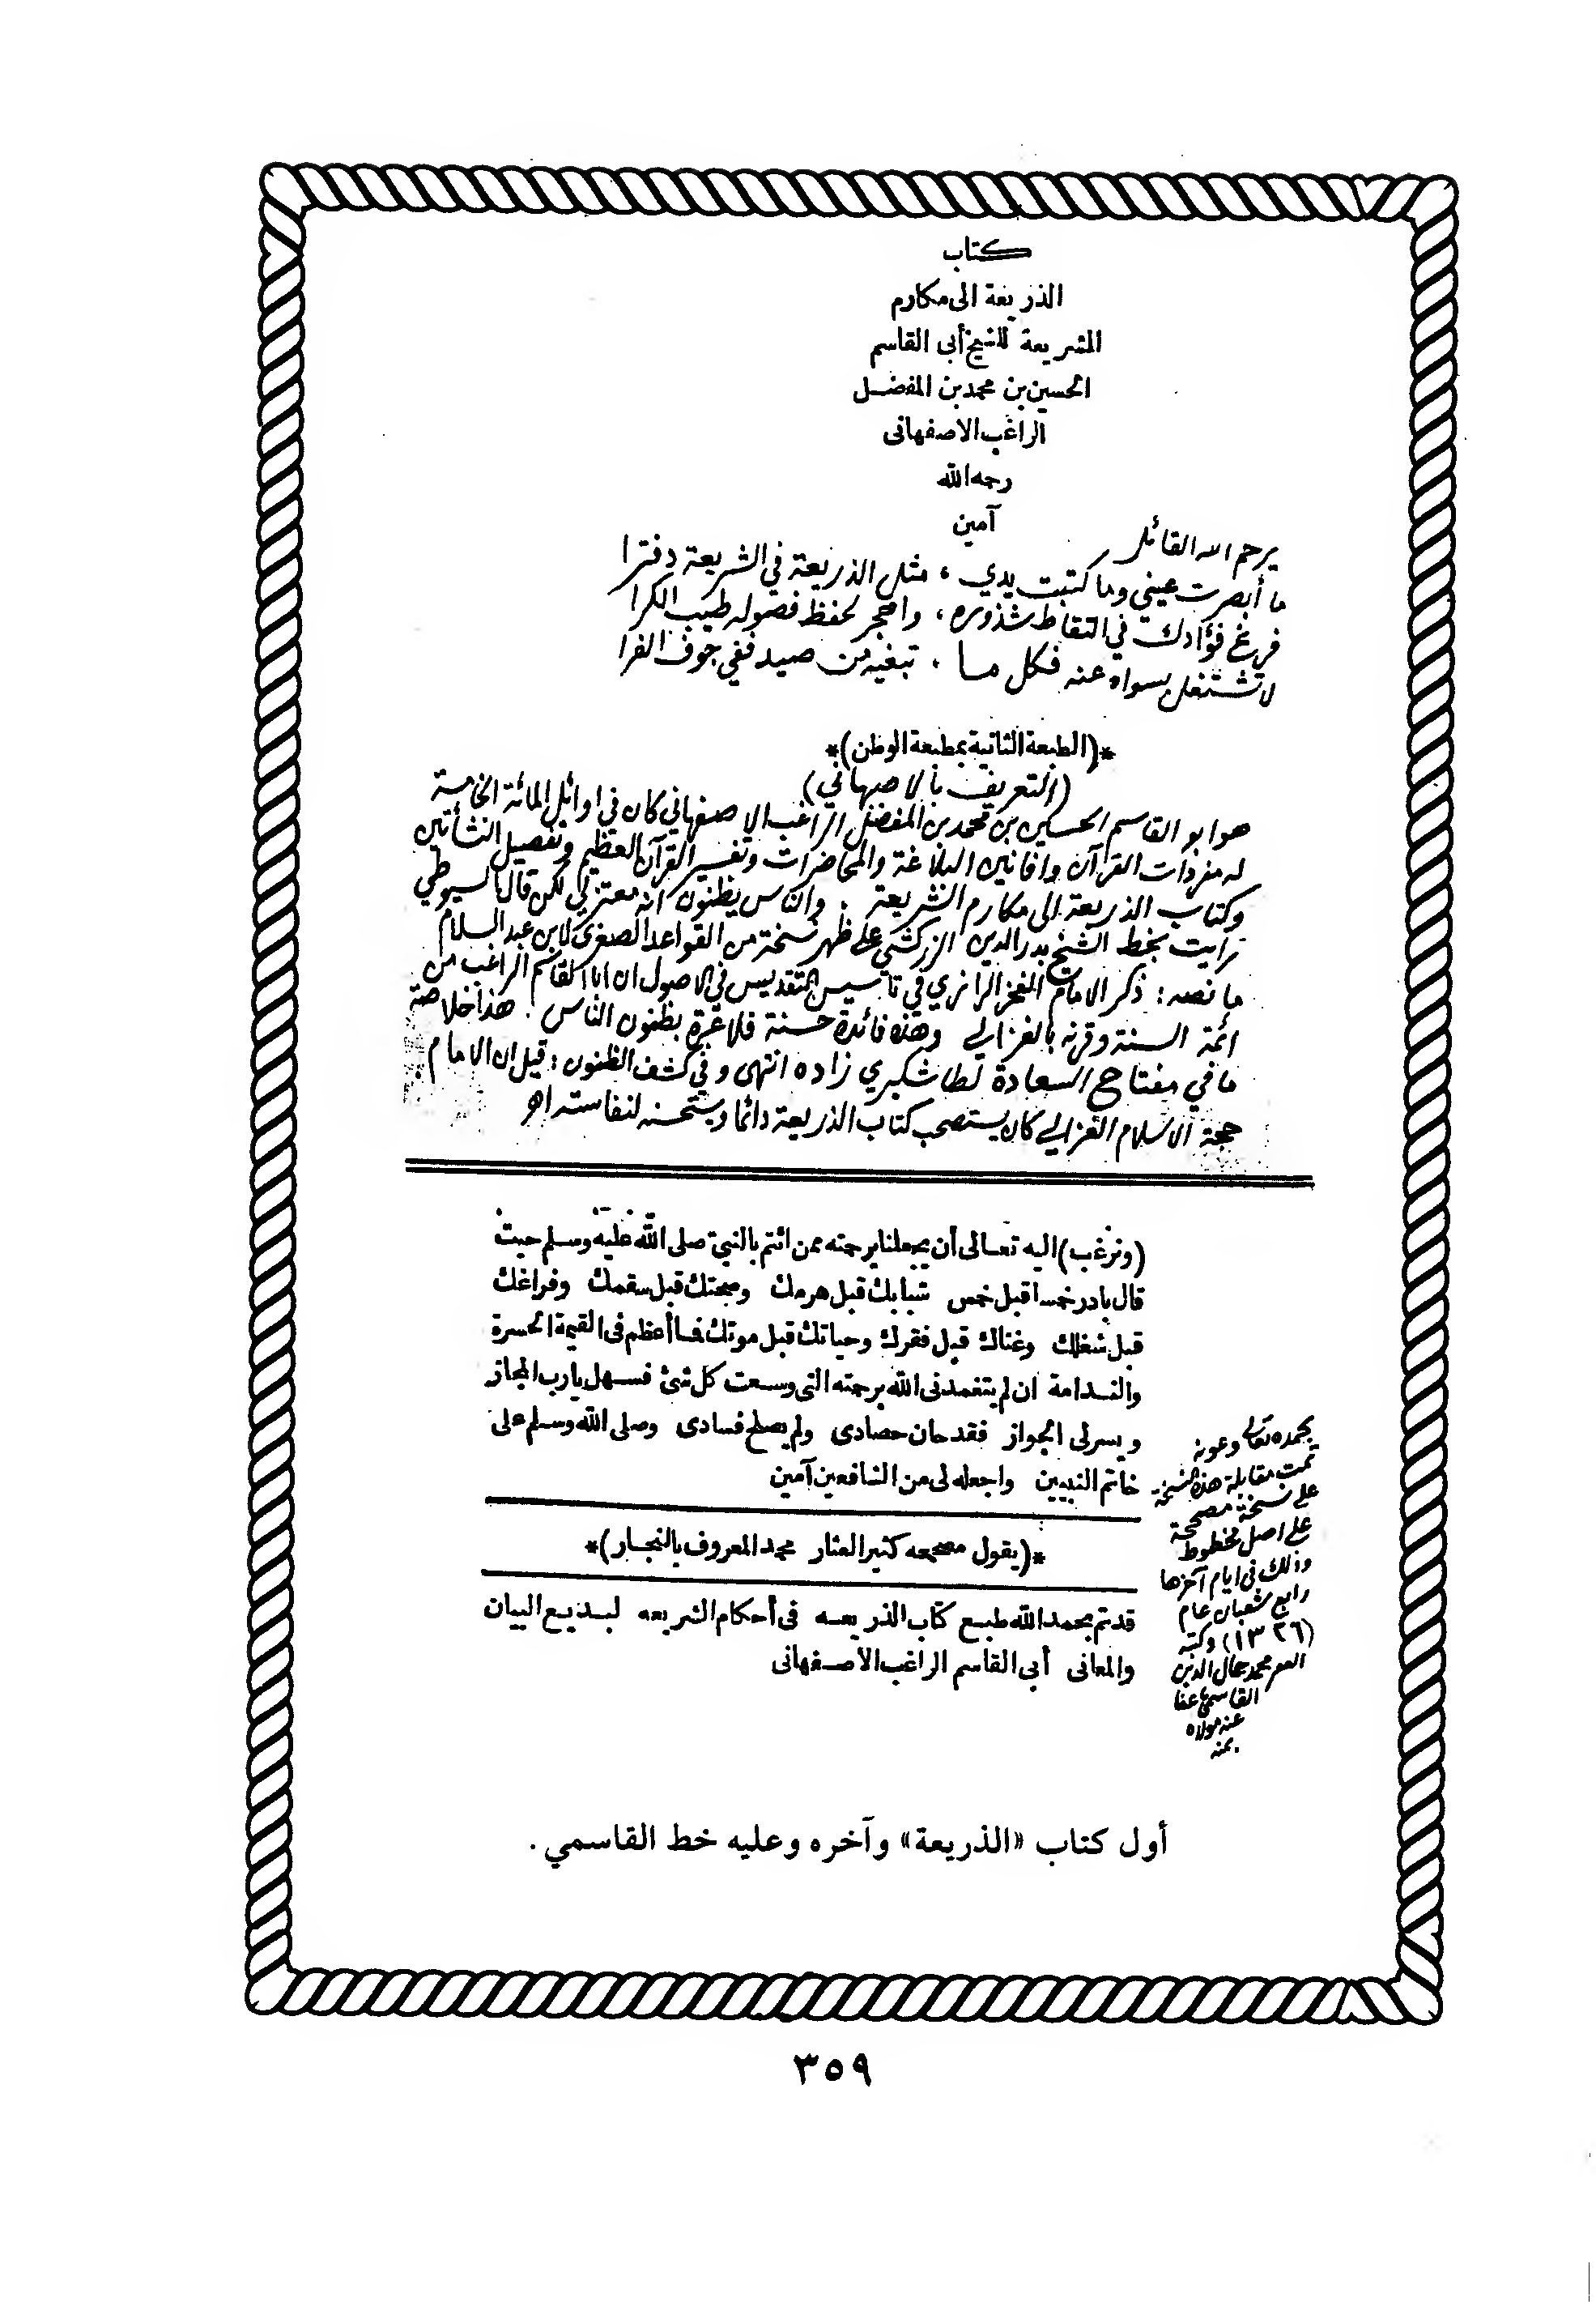 كتاب
الذريعة الى مكارم
الشريعة للشيخ أبى القاسم
الحسين بن محمد بن المفضل
الراغب الاصفهانى
رحمه الله
آمين
يرحم الله القائل
ما أبصرت عيني وما كتبت يدي ، مثل الذريعة في الشريعة دفترا
فرغ فؤادك في التقاط شذوره ، واهجر لحفظ فصوله طيب الكرا
لا تشتغل بسواه عنه فكل ما . تبغيه من صيد ففي جوف الفرا
*(الطبعة الثانية بمطبعة الوطن)*
(التعريف بالاصبهاني)
هو ابو القاسم الحسين بن محمد بن المفضل الراغب الاصفهاني كان في اوائل المائة الخامسة
له مفردات القرآن وافانين البلاغة والمحاضرات وتفسير القرآن العظيم وتفصيل النشأتين
وكتاب الذريعة الى مكارم الشريعة . والناس يظنون انه معتزلي لكن قال السيوطي
رايت بخط الشيخ بدر الدين الزركشي على ظهر نسخة من القواعد الصغرى لابن عبد السلام
ما نصه : ذكر الامام الفخر الرازي في تاسيس التقديس في الاصول ان ابا القاسم الراغب من
ائمة السنة وقرنه بالغزالي وهذه فائدة حسنة فلا عبرة بظنون الناس . هذا خلاصة
ما في مفتاح السعادة لطاشكبري زاده انتهى وفي كشف الظنون : قيل ان الامام
حجة الاسلام الغزالي كان يستصحب كتاب الذريعة دائما ويستحسنه لنفاسته اهـ
(ونرغب) اليه تعالى أن يجعلنا برحمته ممن ائتم بالنبى صلى الله عليه وسلم حيث
قال بادر خمسا قبل خمس شبابك قبل هرمك وصحتك قبل سقمك وفراغك
قبل شغلك وغناك قبل فقرك وحياتك قبل موتك فما أعظم فى القيمة الحسرة
والندامة ان لم يتغمدنى الله برحمته التى وسعت كل شئ فسهل يارب المجاز
ويسرلى الجواز فقد حان حصادى ولم يصلح فسادى وصلى الله وسلم على
خاتم النبيين واجعله لى من الشافعين آمين
*(يقول مصححه كثير العثار محمد المعروف بالنجار)*
قد تم بحمد الله طبع كتاب الذريعه فى أحكام الشريعه لبديع البيان
والمعانى أبى القاسم الراغب الاصفهانى
بحمده تعالى وعونه
تمت مقابلة هذه النسخة
على نسخة مصححة
على اصل مخطوط
وذلك في ايام آخرها
رابع شعبان عام
(١٣٢٦) وكتبه
محمد جمال الدين
القاسمي عفا
عنه مولاه
بمنه
أول كتاب «الذريعة» وآخره وعليه خط القاسمي .
٣٥٩